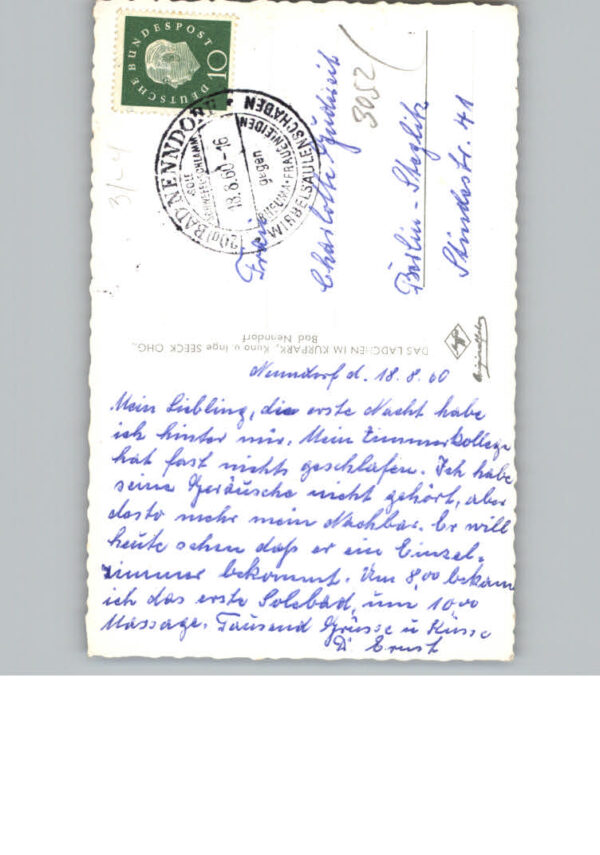 Nenndorf d. 18.8.60
Mein Liebling, die erste Nacht habe
ich hinter mir. Mein Zimmerkollege
hat fast nichts geschlafen. Ich habe
seine Geräusche nicht gehört, aber
desto mehr mein Nachbar. Er will
heute sehen daß er ein Einzel-
zimmer bekommt. Um 8,00 bekam
ich das erste Solebad, um 10,00
Massage. Tausend Grüsse u Küsse
D. Ernst
DEUTSCHE BUNDESPOST
10
(20a) BAD NENNDORF
SOLE
SCHWEFEL-SCHLAMM
18.8.60-16
gegen
RHEUMA·FRAUENLEIDEN
WIRBELSÄULENSCHÄDEN
3052
31-4
Frau
Charlotte
Berlin-Steglitz
Stindestr. 41
DAS LÄDCHEN IM KURPARK, Kuno u. Inge SEECK OHG.,
Bad Nenndorf
Agfa